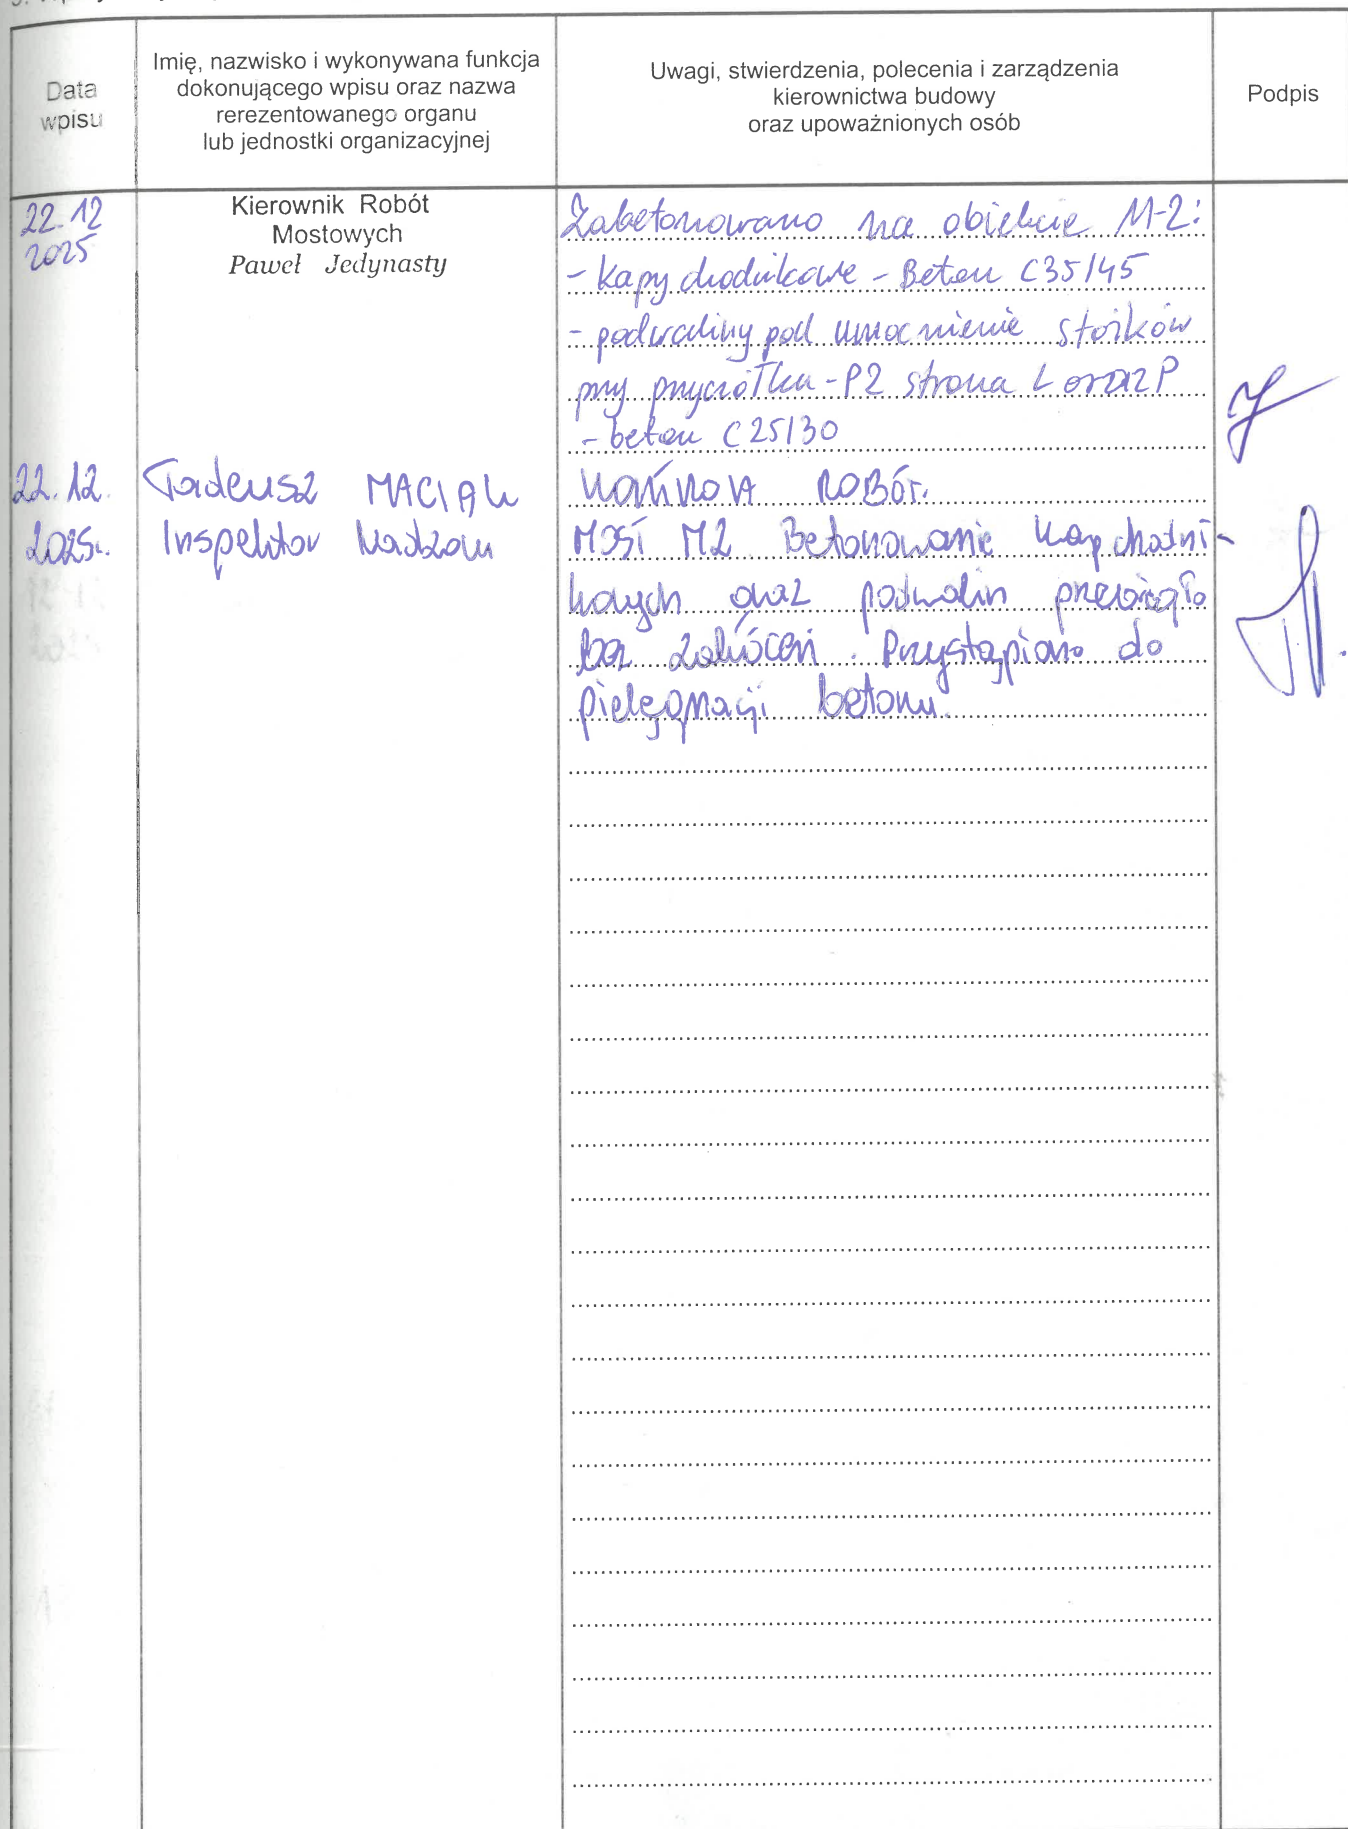 Data
wpisu
Imię, nazwisko i wykonywana funkcja
dokonującego wpisu oraz nazwa
rerezentowanego organu
lub jednostki organizacyjnej
Uwagi, stwierdzenia, polecenia i zarządzenia
kierownictwa budowy
oraz upoważnionych osób
Podpis
22.12
2025
Kierownik Robót
Mostowych
Paweł Jedynasty
Zabetonowano na obiekcie M-2:
- kapy chodnikowe - Beton C35/45
- podwaliny pod umocnienie stożków
przy przyczółku - P2 strona L oraz P
- beton C25/30
22.12.
2025r.
Tadeusz MACIAK
Inspektor Nadzoru
KONTROLA ROBÓT.
MOST M2 Betonowanie kap chodni-
kowych oraz podwalin przebiegło
bez zakłóceń. Przystąpiono do
pielęgnacji betonu.